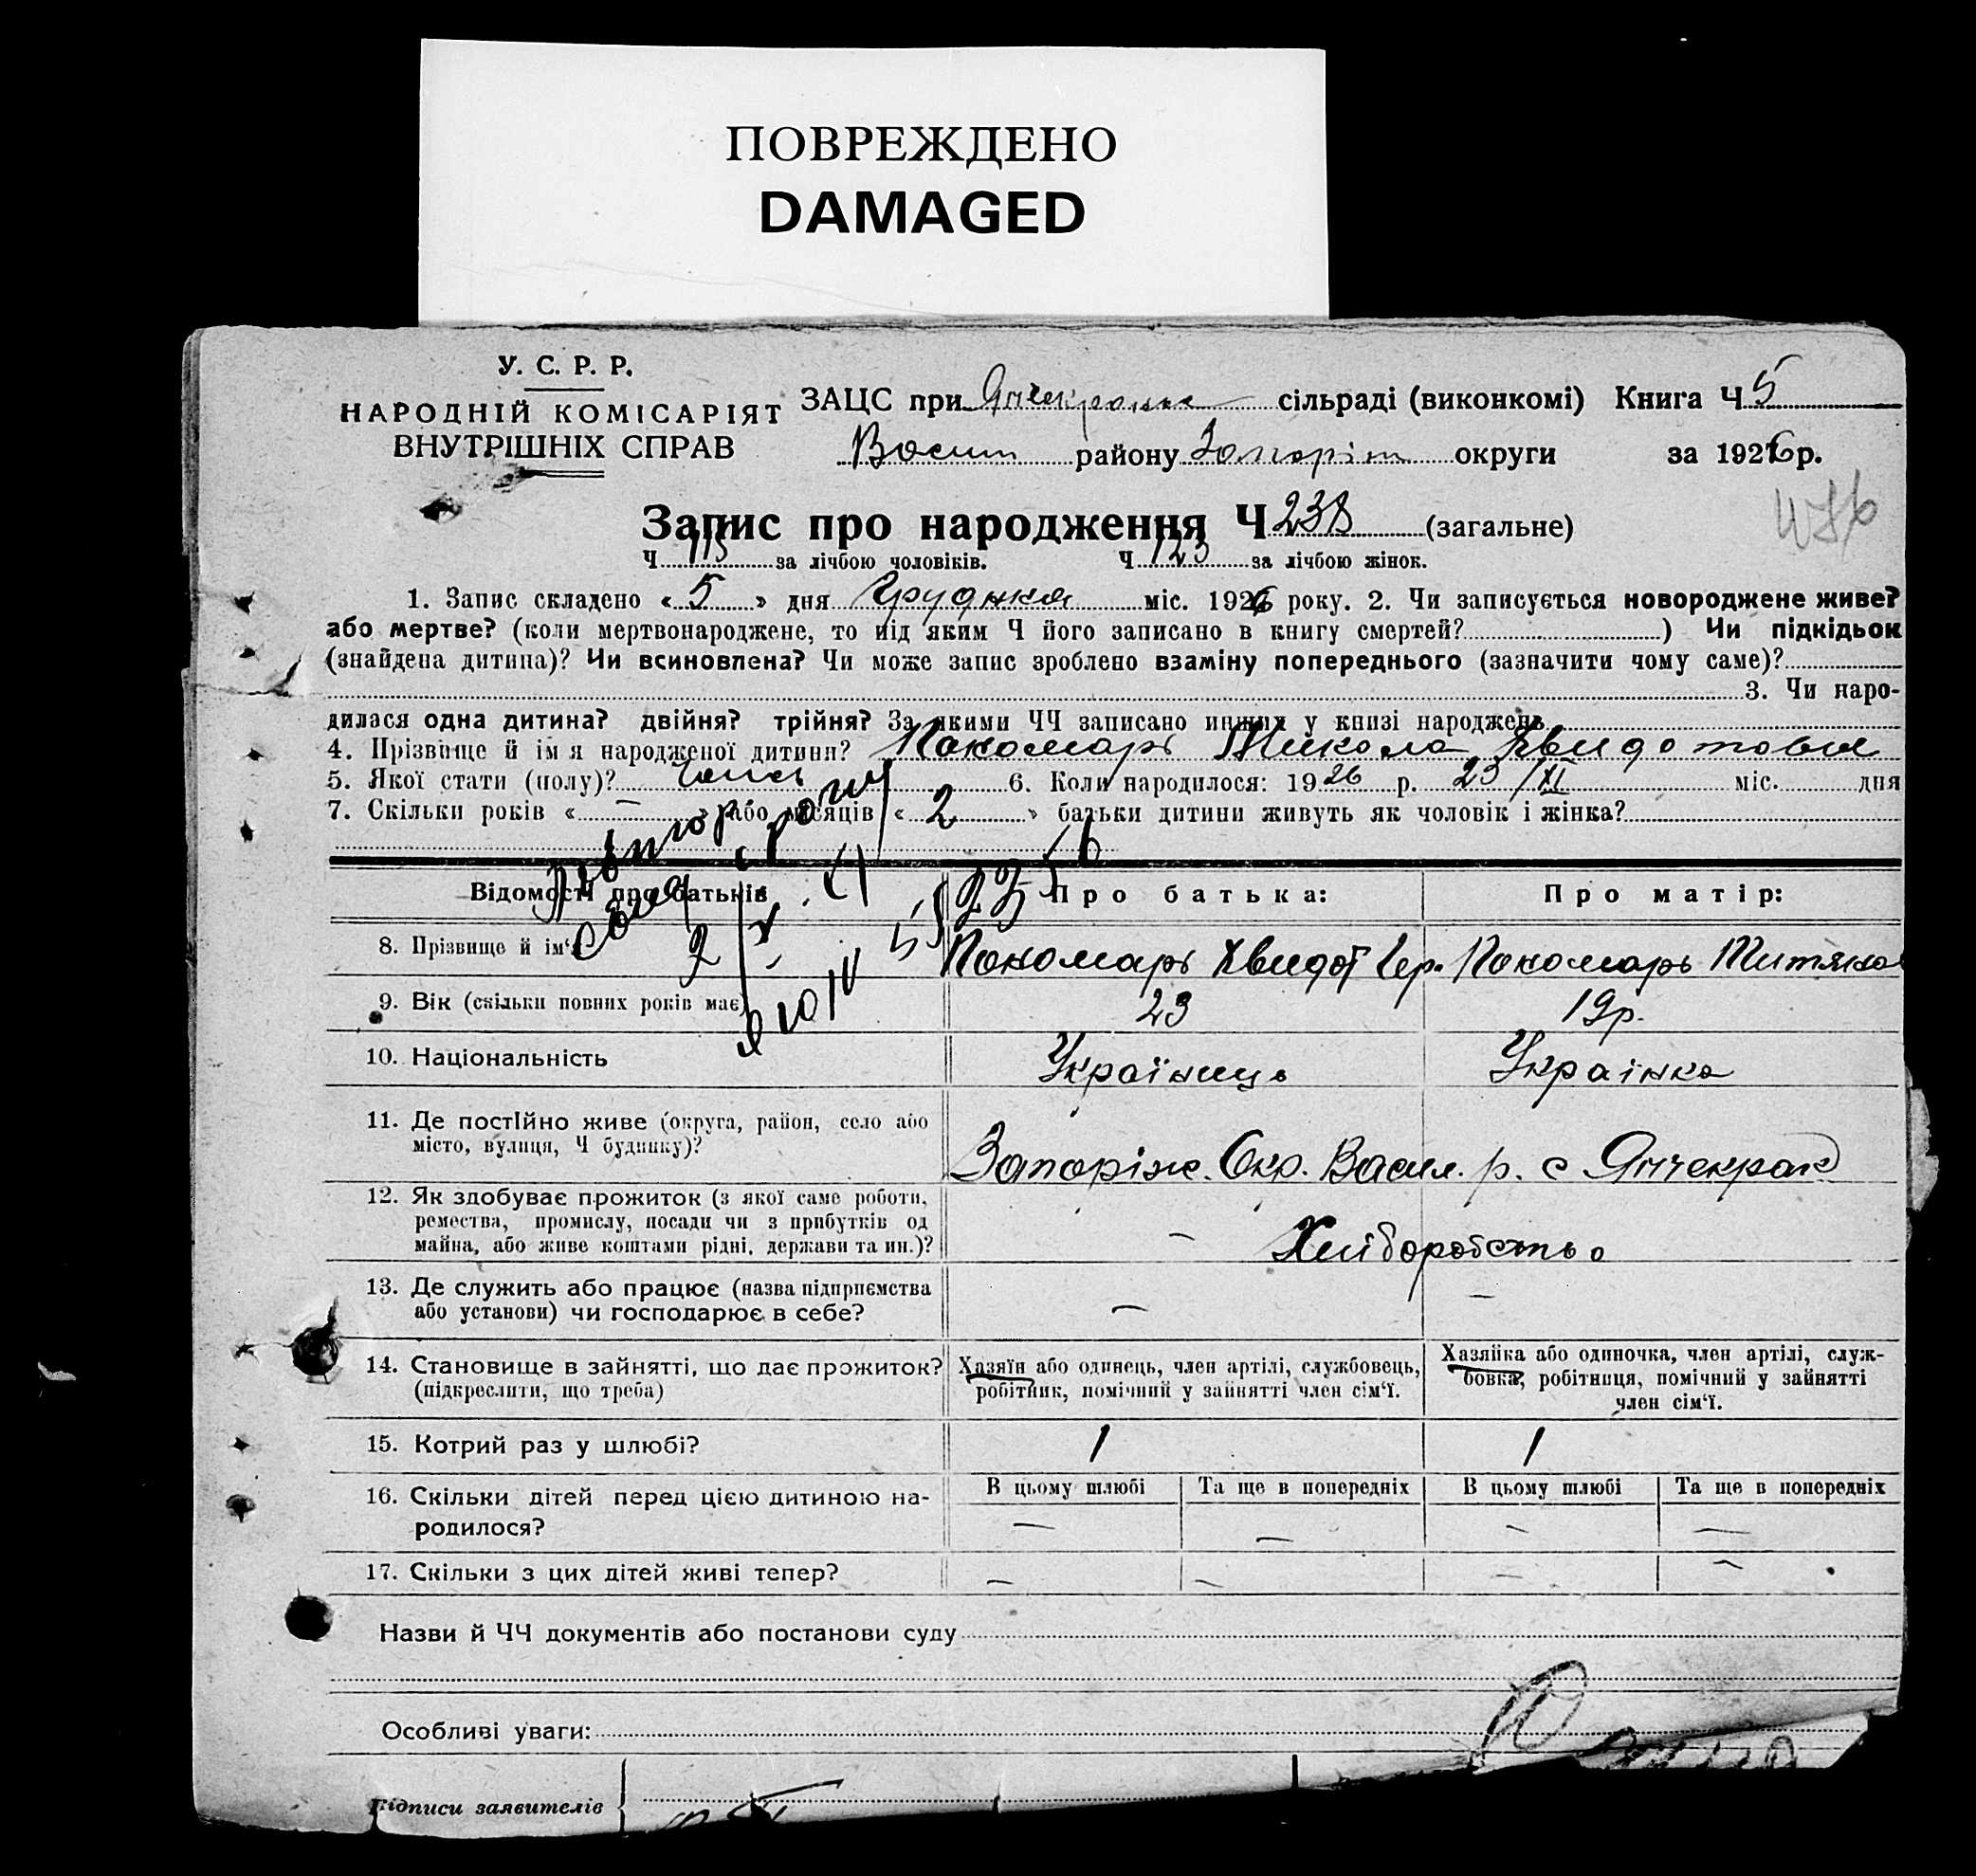 ПОВРЕЖДЕНО
DAMAGED
У. С. Р. Р.
НАРОДНІЙ КОМІСАРІЯТ
ВНУТРІШНІХ СПРАВ
ЗАЦС при Янчекраке сільраді (виконкомі) Книга Ч 5
Васил району Запоріж округи за 1926 р.
Запис про народження Ч 238 (загальне)
Ч 115 за лічбою чоловіків. Ч 123 за лічбою жінок.
1. Запис складено « 5 » дня Грудня міс. 1926 року. 2. Чи записується новороджене живе?
або мертве? (коли мертвонароджене, то під яким Ч його записано в книгу смертей? ) Чи підкідьок
(знайдена дитина)? Чи всиновлена? Чи може запис зроблено взаміну попереднього (зазначити чому саме)?
3. Чи наро-
дилася одна дитина? двійня? трійня? За якими ЧЧ записано инших у книзі народжень
4. Прізвище й ім я народженої дитини? Пономарь Микола Хведотович
5. Якої стати (полу)? 6. Коли народилося: 1926 р. 23/XI міс. дня
7. Скільки років « — » або місяців « 2 » батьки дитини живуть як чоловік і жінка?
Відомості про батьків Про батька: Про матір:
8. Прізвище й ім'я Пономарь Хведот Гр. Пономарь
9. Вік (скільки повних років має) 23 19р.
10. Національність Українець Українка
11. Де постійно живе (округа, район, село або
місто, вулиця, Ч будинку)?
Запоріж. Окр. Васил. р. с Янчекрак
12. Як здобуває прожиток (з якої саме роботи,
ремества, промислу, посади чи з прибутків од
майна, або живе коштами рідні, держави та ин.)?
— Хліборобство
13. Де служить або працює (назва підприємства
або установи) чи господарює в себе?
— —
14. Становище в зайнятті, що дає прожиток?
(підкреслити, що треба)
Хазяїн або одинець, член артілі, службовець,
робітник, помічний у зайнятті член сім'ї.
Хазяйка або одиночка, член артілі, служ-
бовка, робітниця, помічний у зайнятті
член сім'ї.
15. Котрий раз у шлюбі? 1 1
16. Скільки дітей перед цією дитиною на-
родилося?
В цьому шлюбі Та ще в попередніх В цьому шлюбі Та ще в попередніх
— — — —
17. Скільки з цих дітей живі тепер? — — — —
Назви й ЧЧ документів або постанови суду
Особливі уваги:
Підписи заявителів